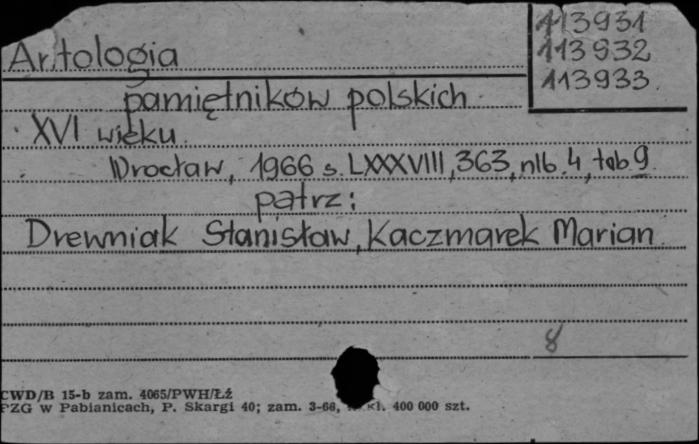 113931
113932
113933
Antologia
pamiętników polskich
XVI wieku
Wrocław, 1966 s. LXXXVIII, 363, nlb. 4, tab. 9
patrz:
Drewniak Stanisław, Kaczmarek Marian
8
CWD/B 15-b zam. 4065/PWH/Łź
PZG w Pabianicach, P. Skargi 40; zam. 3-66, kl. 400 000 szt.